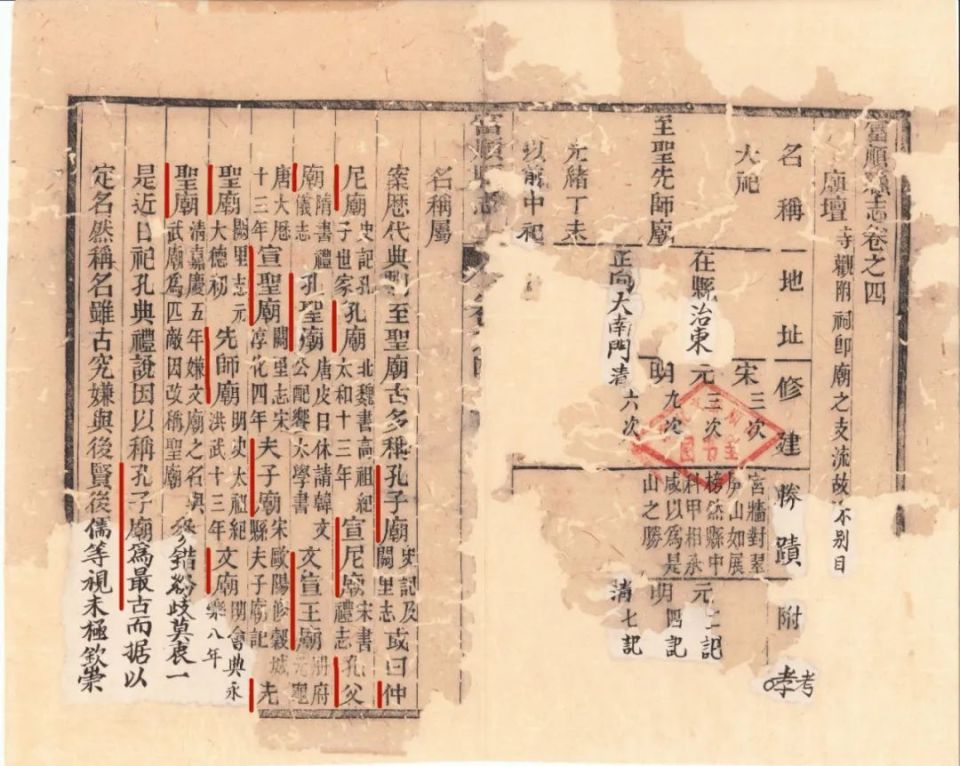 富順縣志卷之四
廟壇 寺觀附祠即廟之支流故不别目
名稱 地址 修建 勝蹟 附考
大祀
至聖先師廟
在縣治東
正向大南門
宋三次
元三次
明九次
清六次
宮牆對翠
屏山如展
榜然縣中
科甲相承
咸以爲是
山之勝
元二記
明四記
清七記
光緒丁未
以前中祀
富順縣志
名稱屬
案歷代典制至聖廟古多稱孔子廟 史記及闕里志 或曰仲
尼廟 史記孔子世家 孔廟 北魏書高祖紀太和十三年 宣尼廟 宋書禮志 孔父
廟 隋書禮儀志 孔聖廟 唐皮日休請韓文公配饗太學書 文宣王廟 冊府元龜
唐大歷十三年 宣聖廟 闕里志宋淳化四年 夫子廟 宋歐陽修穀城縣夫子廟記 先
聖廟 闕里志元大德初 先師廟 明史太禮紀洪武十三年 文廟 明會典永樂八年
聖廟 清嘉慶五年嫌文廟之名與武廟爲匹敵因改稱聖廟 參錯紛歧莫衷一
是近日祀孔典禮說因以稱孔子廟爲最古而据以
定名然稱名雖古究嫌與後賢後儒等視未極欽崇